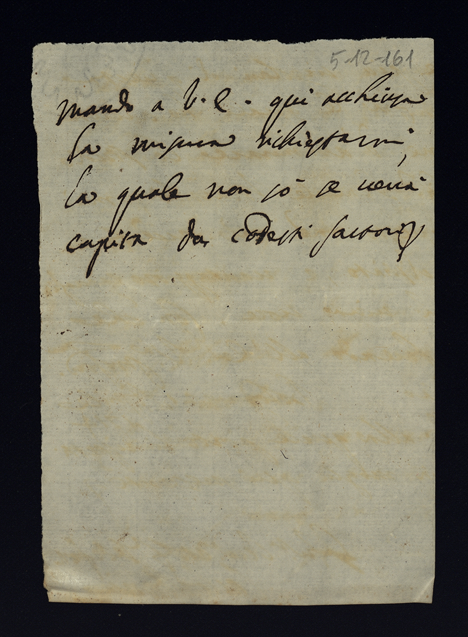 5-12-161
mando a V. E. qui acchiusa
la misura richiestami,
la quale non sò se verrà
capita da codesti sartori